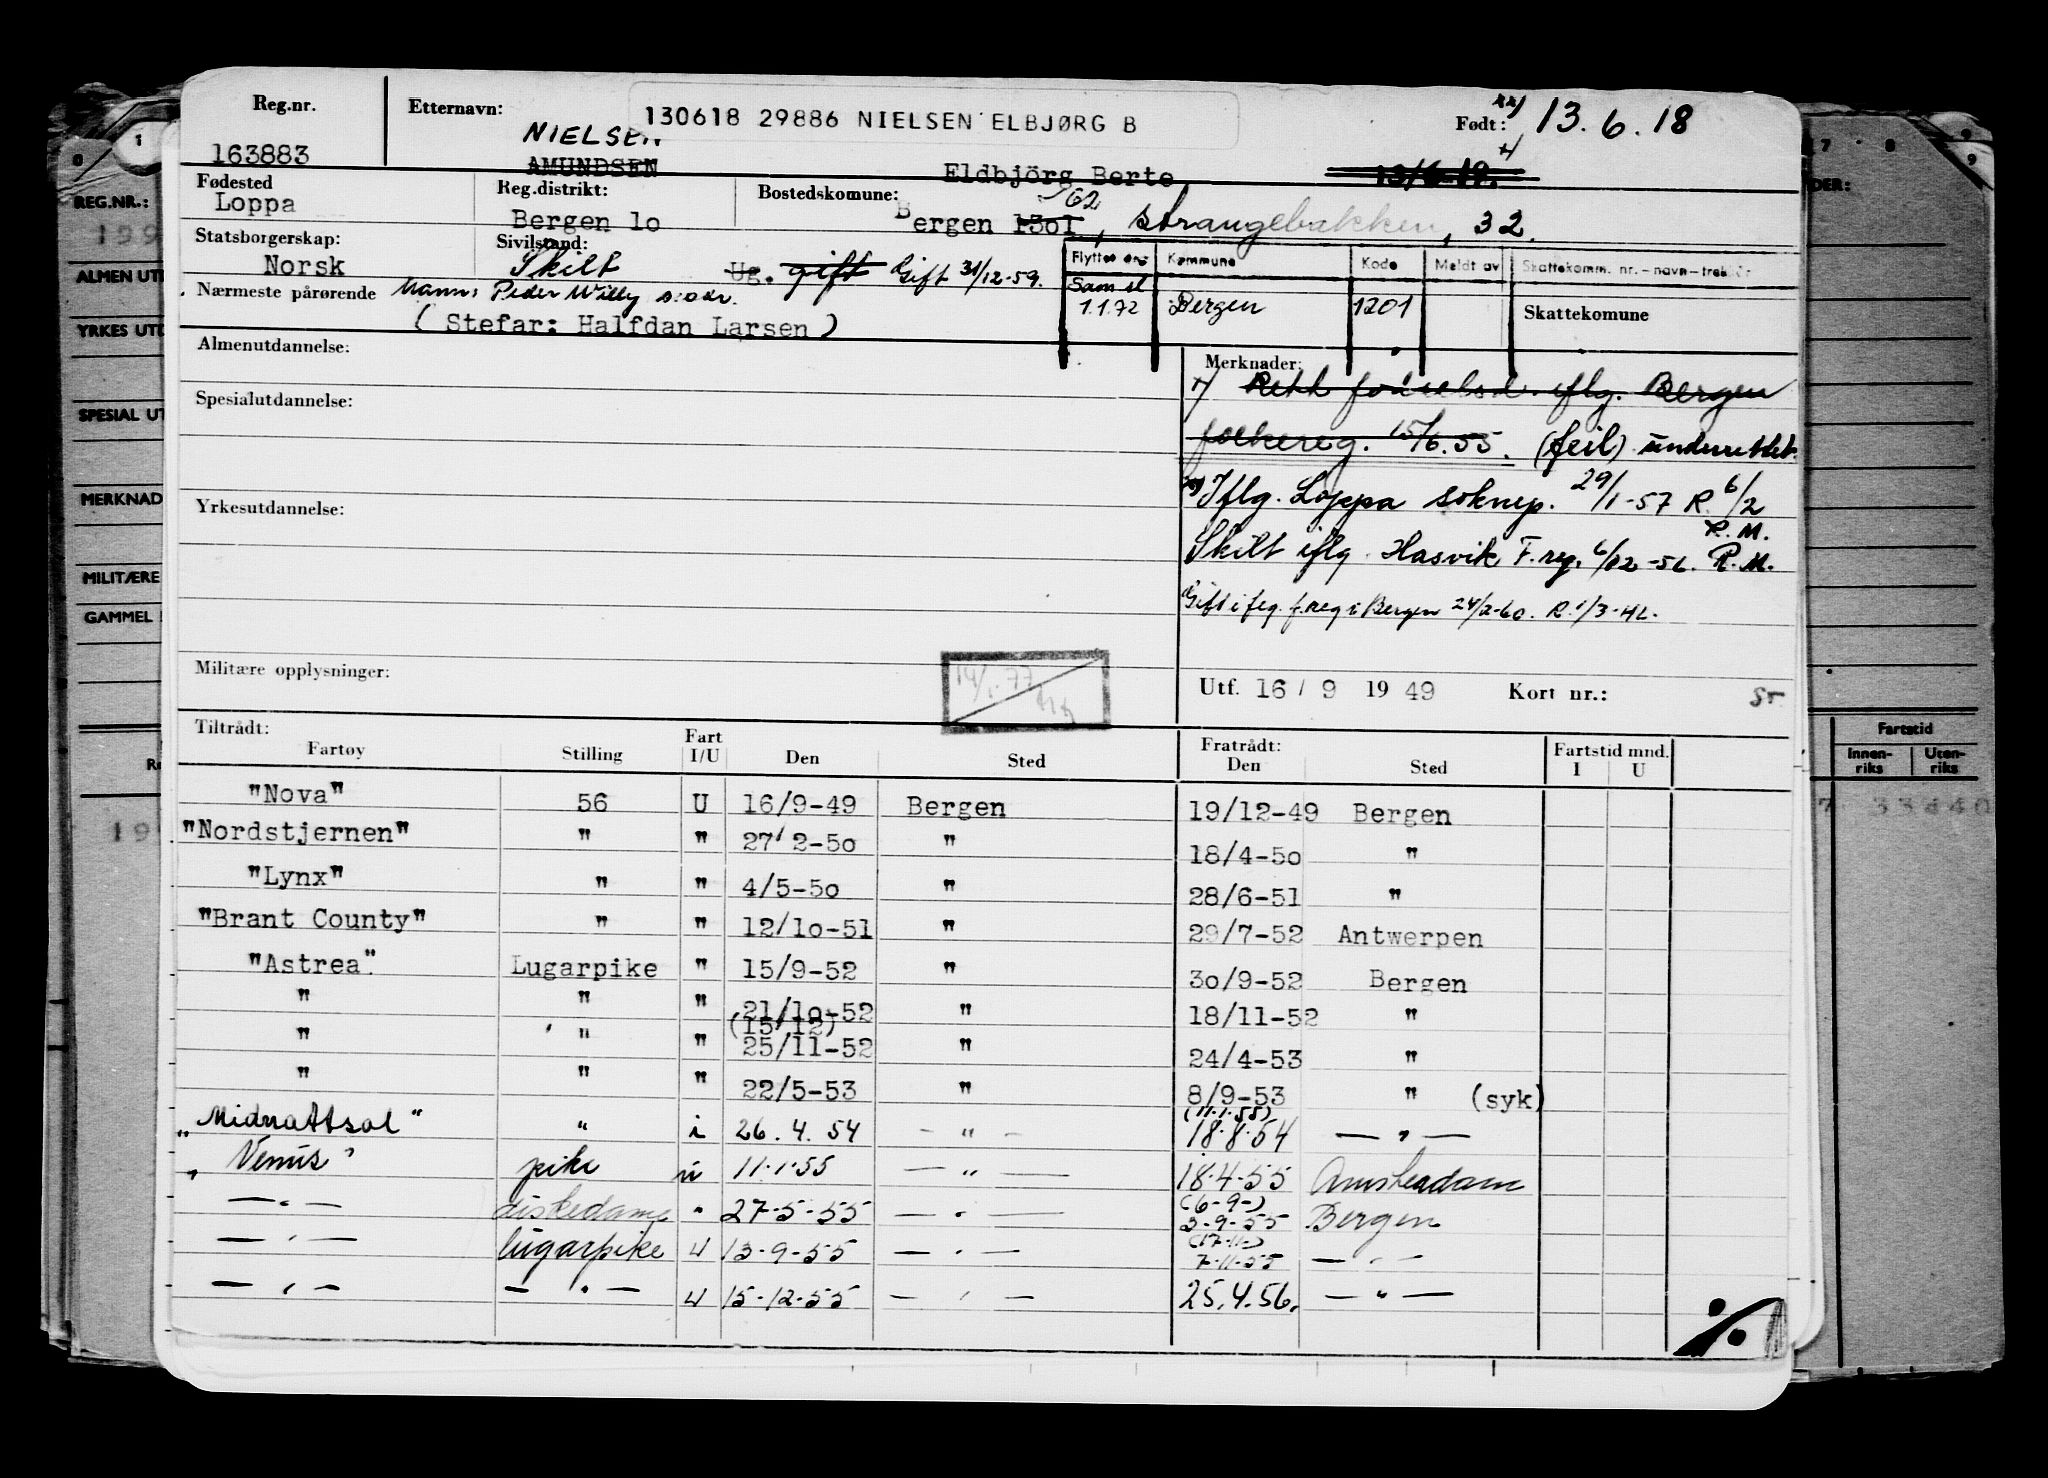 Reg.nr. Etternavn: 130618 29886 NIELSEN ELBJØRG B Født: xx) 13.6.18
163883 NIELSEN
AMUNDSEN Eldbjörg Berte 13/6-19. x)
Fødested Reg.distrikt: Bostedskomune:
Loppa Bergen 1o Bergen 13o1 /62, Strangebakken, 32.
Statsborgerskap: Sivilstand: Flyttet Kommune Kode Meldt av Skattekomm. nr.-navn-
Norsk Skilt Ug. gift Gift 31/12-59. Sam sl
Nærmeste pårørende Mann: Peder Willy s.adr. 1.1.72 Bergen 1201 Skattekomune
( Stefar: Halfdan Larsen )
Almenutdannelse: Merknader:
x) Rett fødselsd. iflg. Bergen
Spesialutdannelse:
folkereg. 15/6.55. (feil) underrettet.
xx) Iflg. Loppa soknep. 29/1-57 R. 6/2
Yrkesutdannelse: R.M.
Skilt iflg. Hasvik F.reg. 6/12-56. R.M.
Gift i flg. f.reg i Bergen 24/2-60. R. 1/3-HL.
Militære opplysninger: 14/1.77
Utf. 16 / 9 19 49 Kort nr.:
Tiltrådt: Fratrådt: Fartstid mnd.
Fartøy Stilling Fart I/U Den Sted Den Sted I U
"Nova" 56 U 16/9-49 Bergen 19/12-49 Bergen
"Nordstjernen" " " 27/2-5o " 18/4-5o "
"Lynx" " " 4/5-5o " 28/6-51 "
"Brant County" " " 12/1o-51 " 29/7-52 Antwerpen
"Astrea" Lugarpike " 15/9-52 " 3o/9-52 Bergen
" " " 21/1o-52 " 18/11-52 "
(15/12)
" " " 25/11-52 " 24/4-53 "
" " " 22/5-53 " 8/9-53 " (syk)
(11.1.55)
"Midnattsol" " i 26.4.54 — " — 18.8.54 — " —
"Venus" pike u 11.1.55 — " — 18.4.55 Amsterdam
(6-9-)
— " — diskedame " 27-5-55 — " — 3-9-55 Bergen
(17-11-)
— " — lugarpike U 13-9-55 — " — 7-11-55 — " —
— " — — " — U 15-12-55 — " — 25.4.56. — " —
%
0 1 7 8 9
REG.NR.:
199
ALMEN UT
YRKES UTD
SPESIAL UT
MERKNAD
MILITÆRE
GAMMEL
DER:
Fartstid
Innen-riks Uten-riks
7 33440
19